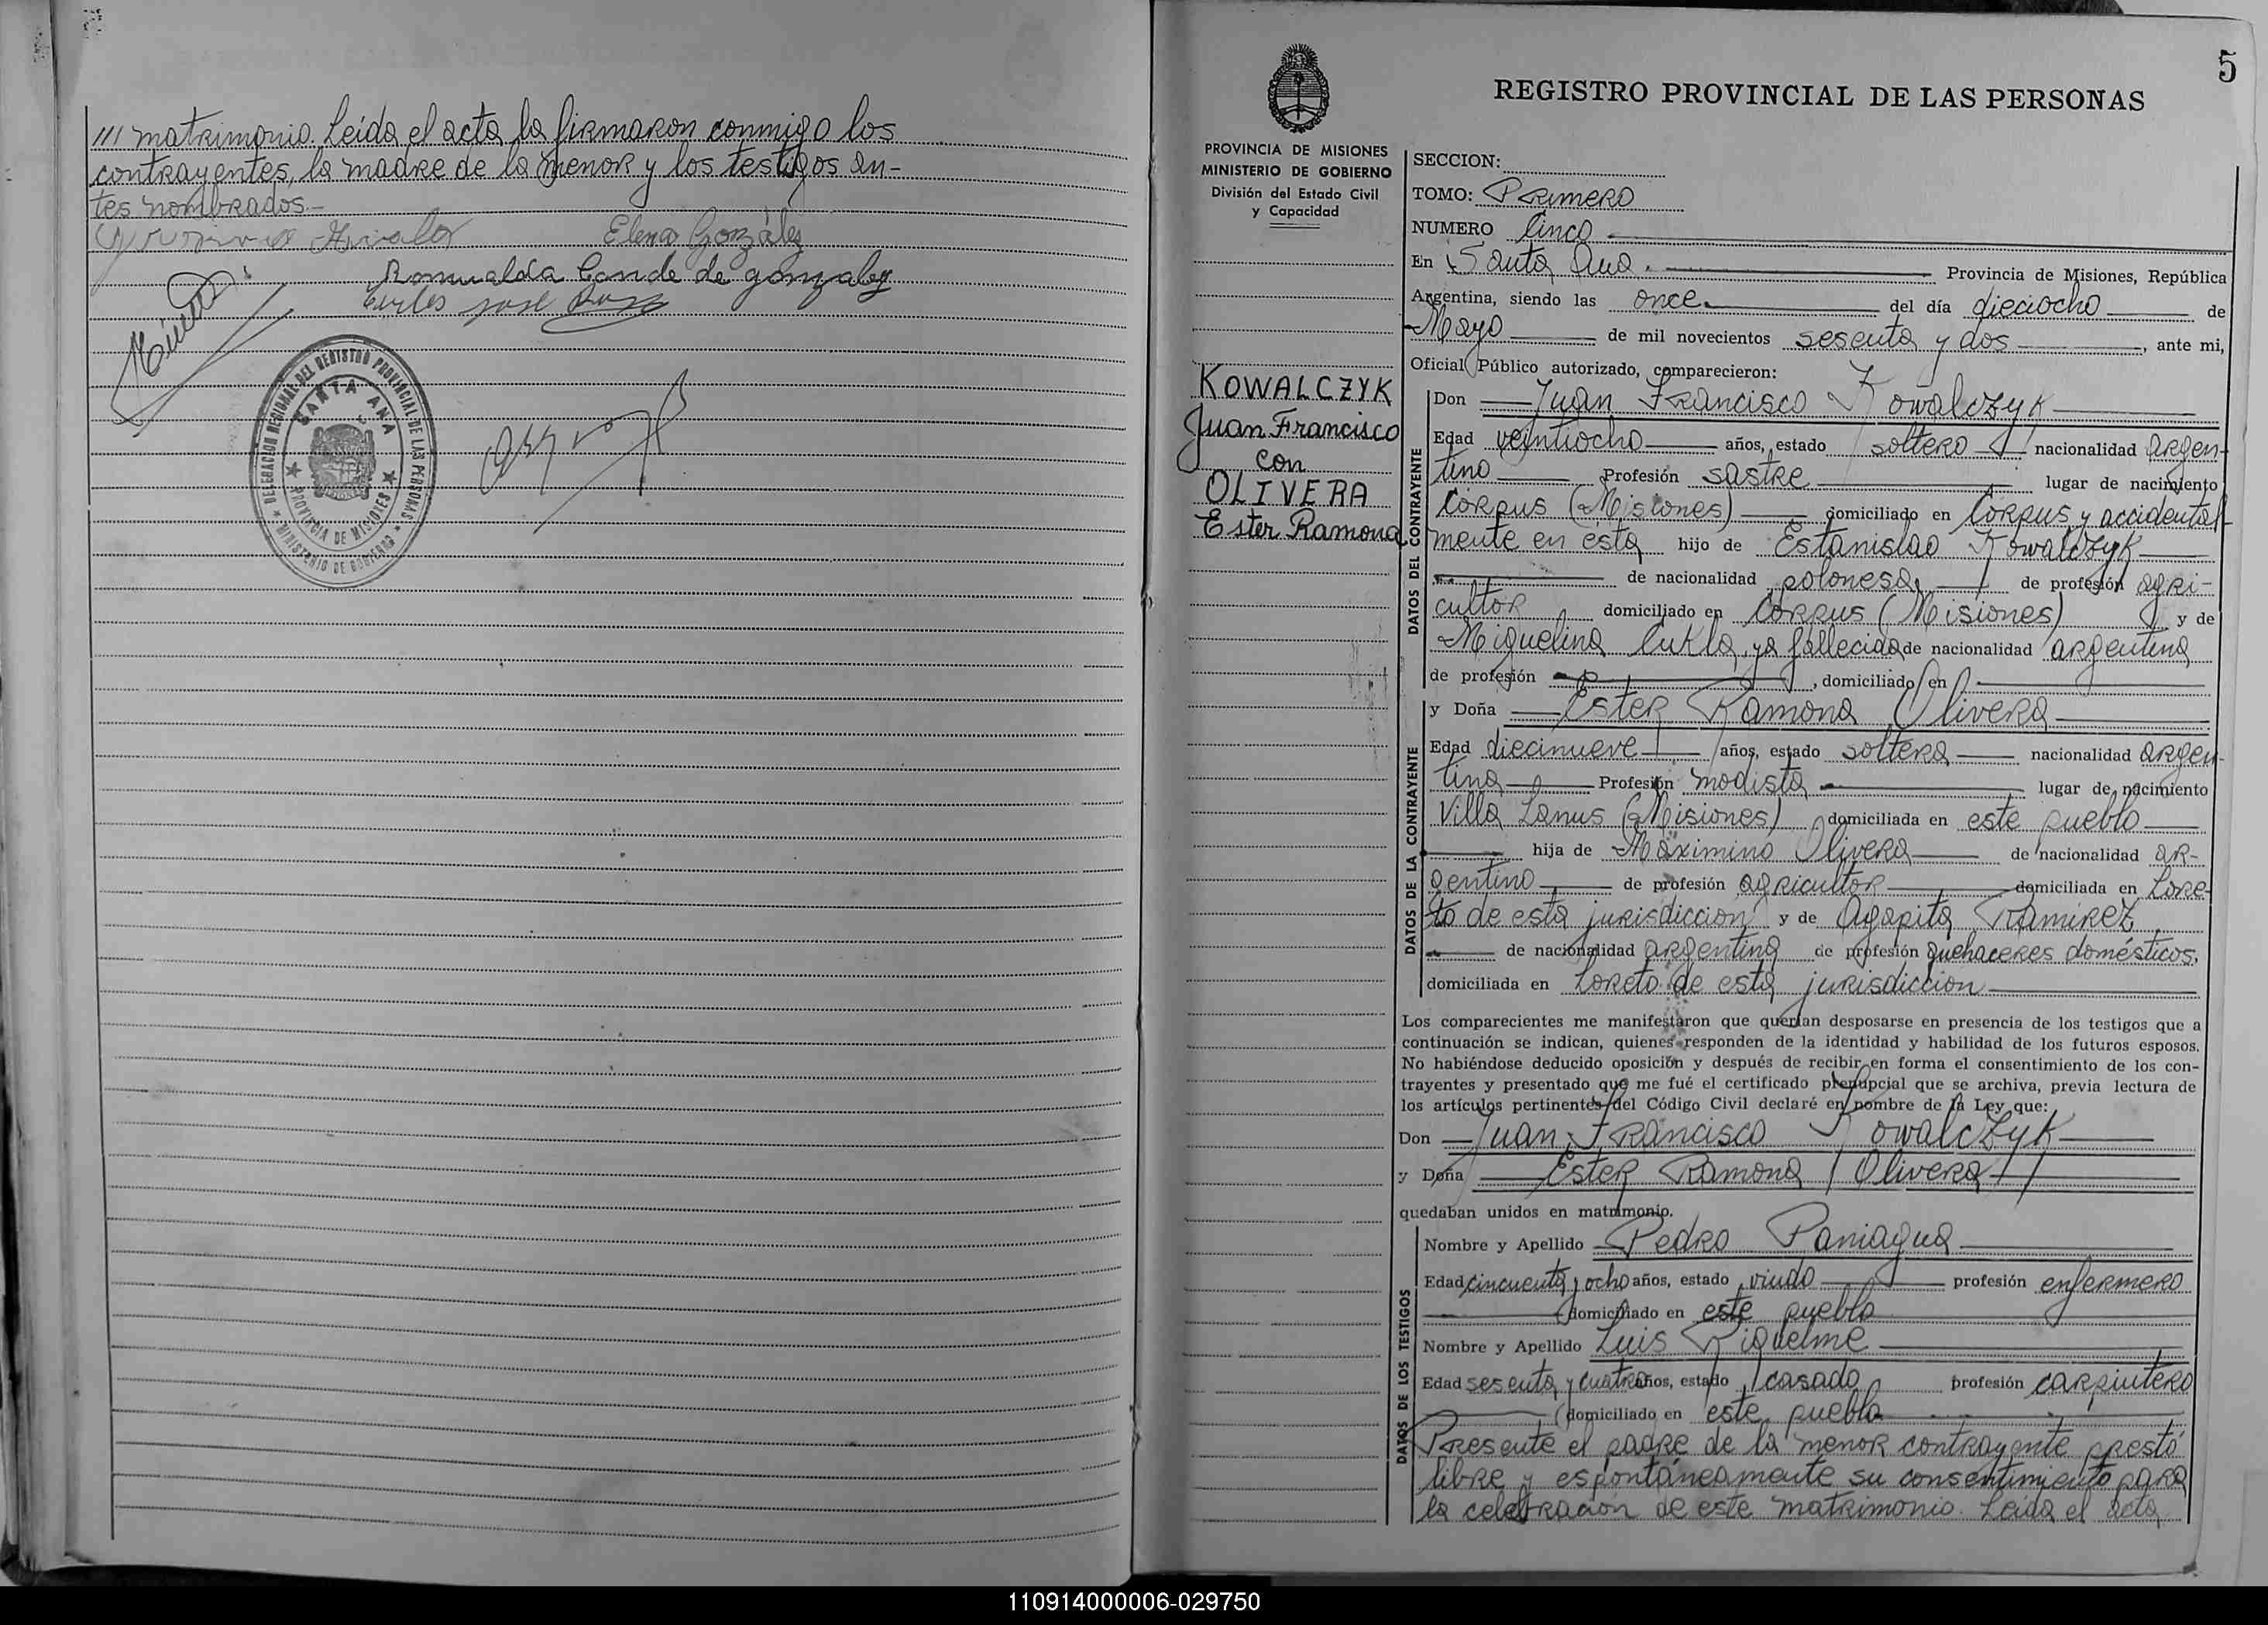 /// matrimonio. Leída el acta la firmaron conmigo los
contrayentes, la madre de la menor y los testigos an-
tes nombrados.-
Elena González
Romualda Conde de gonzalez
Carlos jose
DELEGACION REGIONAL DEL REGISTRO PROVINCIAL DE LAS PERSONAS
SANTA ANA
PROVINCIA DE MISIONES
MINISTERIO DE GOBIERNO
5
REGISTRO PROVINCIAL DE LAS PERSONAS
PROVINCIA DE MISIONES
MINISTERIO DE GOBIERNO
División del Estado Civil
y Capacidad
KOWALCZYK
Juan Francisco
con
OLIVERA
Ester Ramona
SECCION:
TOMO: Primero
NUMERO Cinco
En Santa Ana. Provincia de Misiones, República
Argentina, siendo las once. del día dieciocho de
Mayo de mil novecientos sesenta y dos, ante mi,
Oficial Público autorizado, comparecieron:
DATOS DEL CONTRAYENTE
Don Juan Francisco Kowalczyk
Edad veintiocho años, estado soltero nacionalidad argen-
tino Profesión sastre lugar de nacimiento
Corpus (Misiones) domiciliado en Corpus y accidental-
mente en esta hijo de Estanislao Kowalczyk
de nacionalidad polonesa, de profesión agri-
cultor domiciliado en Corpus (Misiones) y de
Miguelina Cukla, ya fallecida de nacionalidad argentina
de profesión , domiciliado en
DATOS DE LA CONTRAYENTE
y Doña Ester Ramona Olivera
Edad diecinueve años, estado soltera nacionalidad argen-
tina Profesión modista lugar de nacimiento
Villa Lanus (Misiones) domiciliada en este pueblo
hija de Máximino Olivera de nacionalidad ar-
gentino de profesión agricultor domiciliada en Lore-
to de esta jurisdiccion y de Agapita Ramirez,
de nacionalidad argentina de profesión quehaceres domésticos,
domiciliada en Loreto de esta jurisdiccion
Los comparecientes me manifestaron que querían desposarse en presencia de los testigos que a
continuación se indican, quienes responden de la identidad y habilidad de los futuros esposos.
No habiéndose deducido oposición y después de recibir en forma el consentimiento de los con-
trayentes y presentado que me fué el certificado prenupcial que se archiva, previa lectura de
los artículos pertinentes del Código Civil declaré en nombre de la Ley que:
Don Juan Francisco Kowalczyk
y Doña Ester Ramona Olivera
quedaban unidos en matrimonio.
DATOS DE LOS TESTIGOS
Nombre y Apellido Pedro Paniagua
Edad cincuenta y ocho años, estado viudo profesión enfermero
domiciliado en este pueblo
Nombre y Apellido Luis Riquelme
Edad sesenta y cuatro años, estado casado profesión carpintero
domiciliado en este pueblo
Presente el padre de la menor contrayente prestó
libre y espontáneamente su consentimiento para
la celebración de este matrimonio. Leída el acta
110914000006-029750